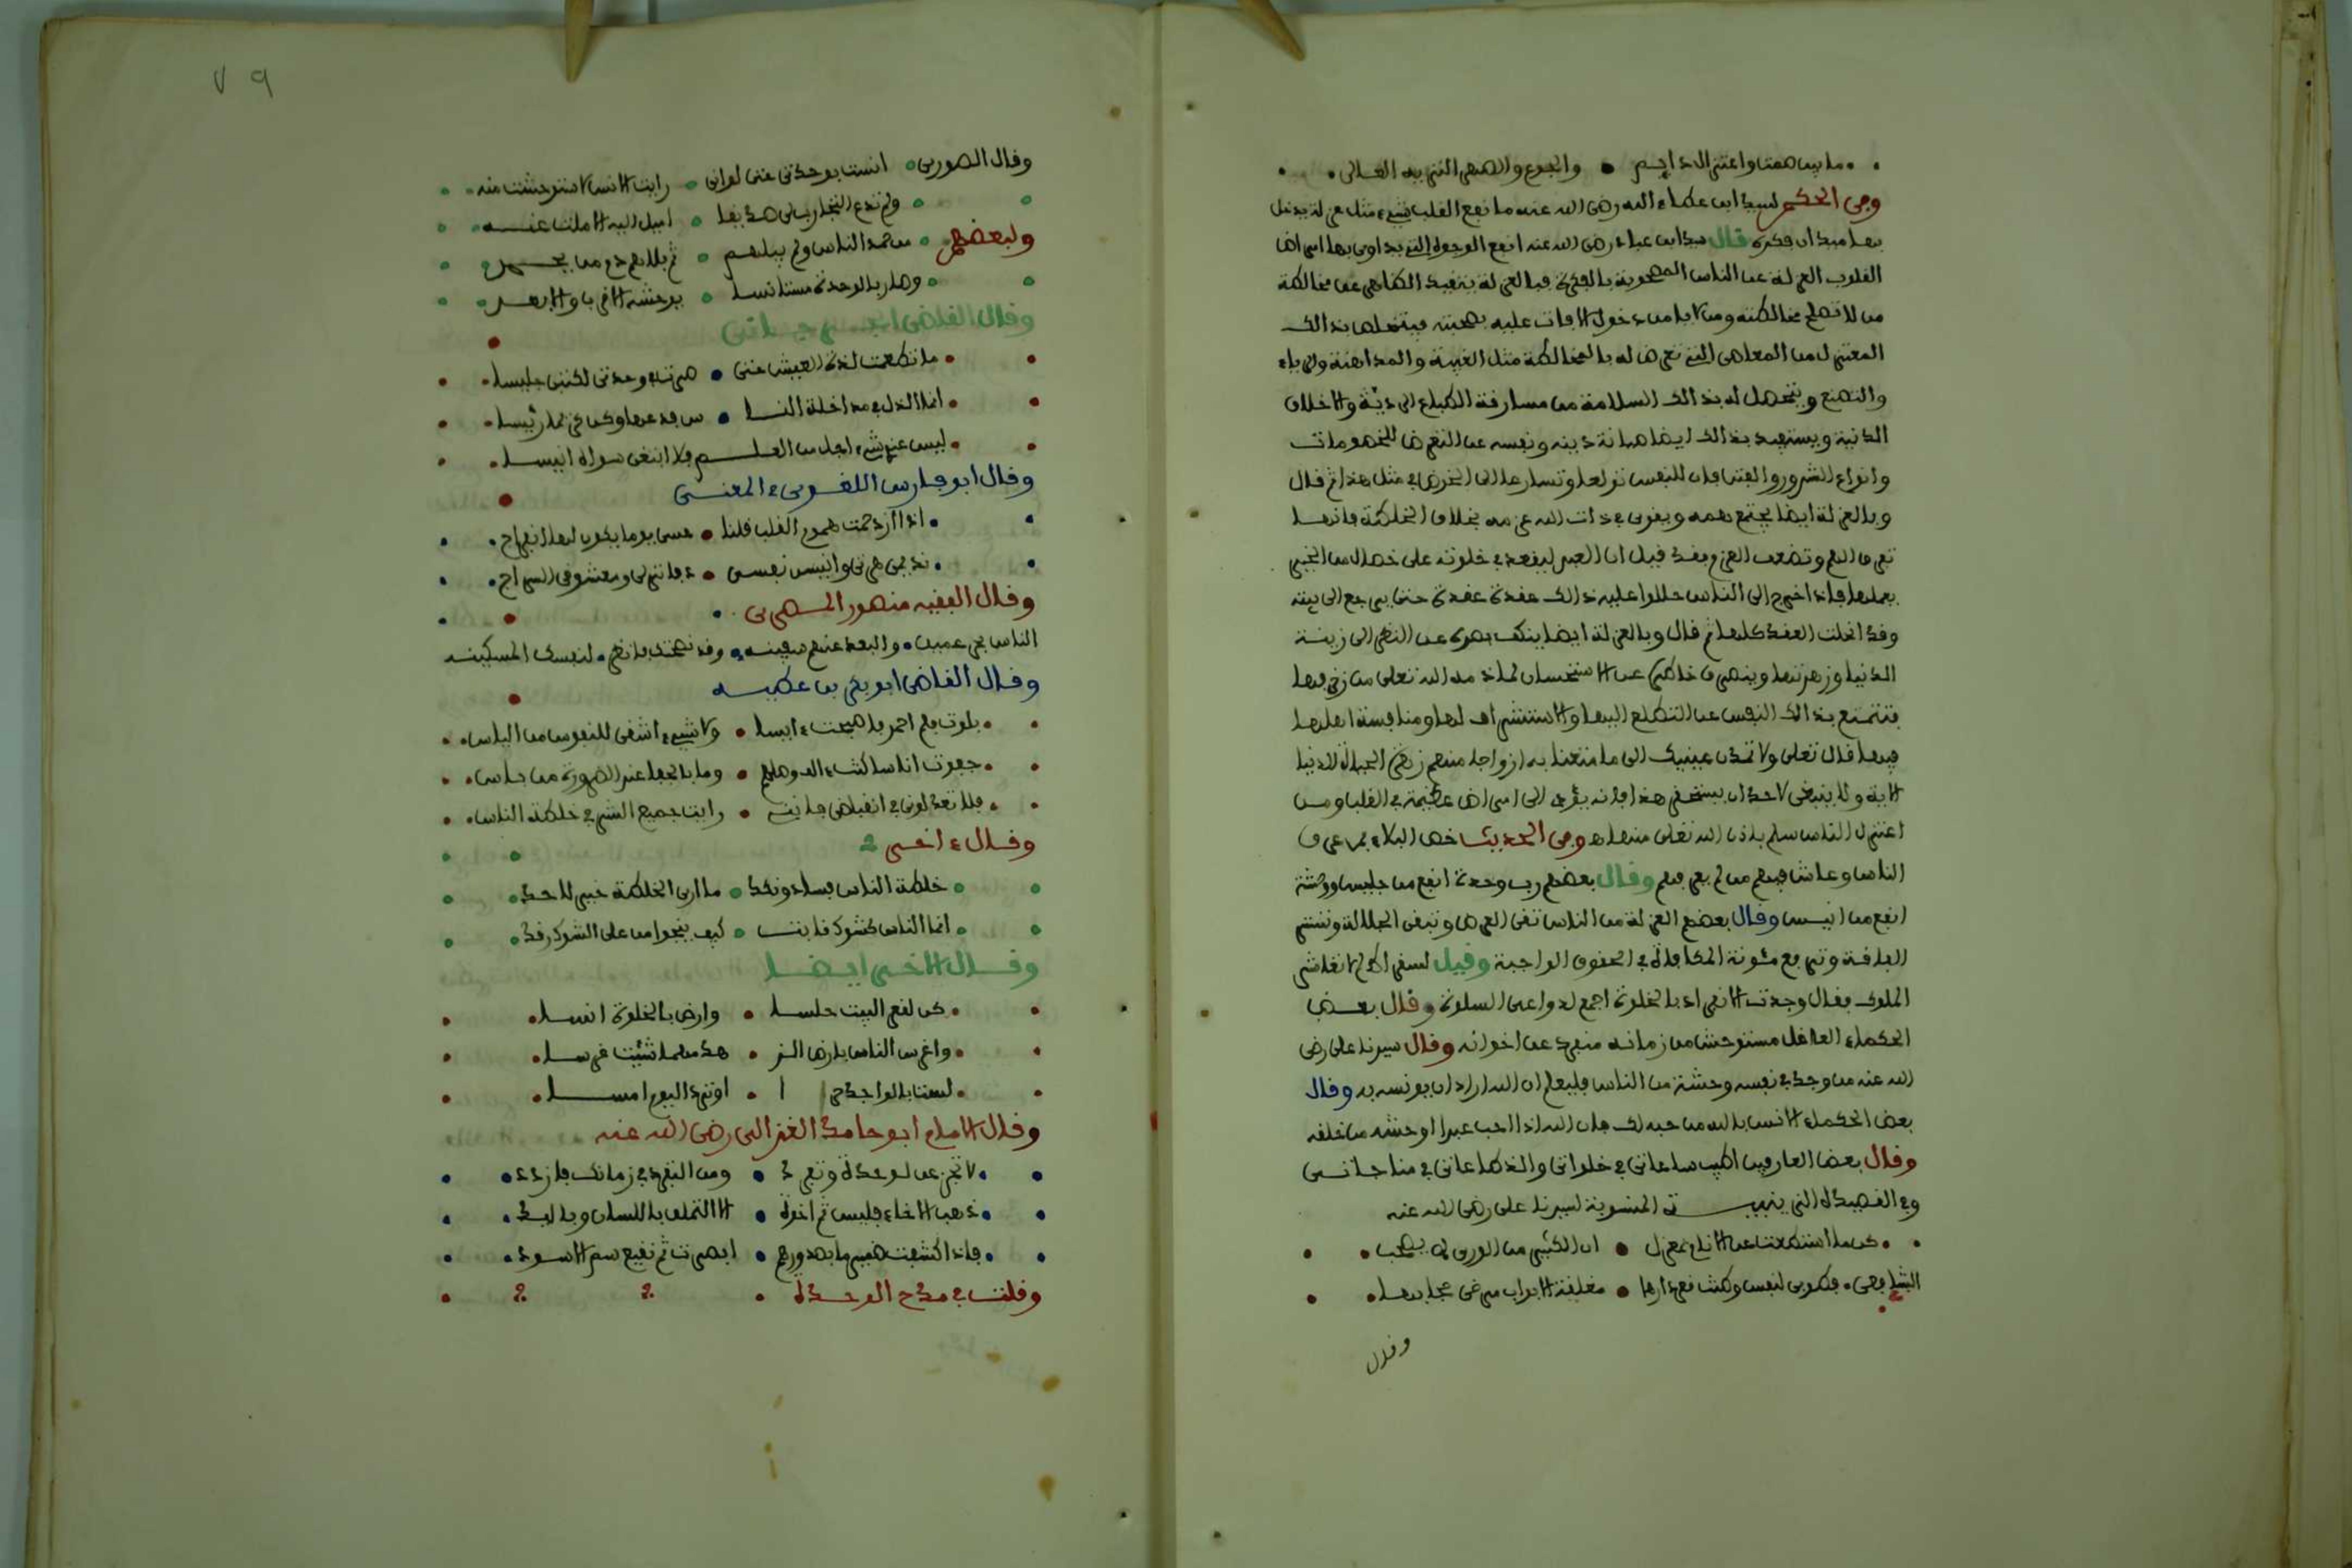 ما بين صمت واعتزال دائم • والجوع والسهر النزيه الغالي
ومن الحكم لسيدنا ابن عطاء الله رضي الله عنه ما نفع القلب شيء مثل عزلة يدخل
بها ميدان فكرة قال سيدنا ابن عباد رضي الله عنه انفع الوجوه التي يداوى بها امراض
القلوب العزلة عن الناس المصحوبة بالفكرة فبالعزلة يتقيد الظاهر عن مخالطة
من لا تصلح مخالطته ومن لا يامن دخول الافات عليه بصحبته فيتخلص بذالك
المعتزل من المعاصي التي تعرض له بالمخالطة مثل الغيبة والمداهنة والرياء
والتصنع ويتحصل له بذالك السلامة من مسارقة الطباع الردية والاخلاق
الدنية ويستفيد بذالك ايضا صيانة دينه ونفسه عن التعرض للخصومات
وانواع الشرور والفتن فان للنفس تولعا وتسارعا الى الخوض في مثل هذا ثم قال
وبالعزلة ايضا يجتمع همه ويقوى في ذات الله عزمه بخلاف الخلطة فانها
تفرق الهم وتضعف العزم فقد قيل ان العبد ليعقد في خلوته على خصال من الخير
يعملها فاذا خرج الى الناس حللوا عليه ذالك عقدة عقدة حتى يرجع الى بيته
وقد انحلت العقد كلها ثم قال وبالعزلة ايضا ينكف بصره عن النظر الى زينة
الدنيا وزهرتها وينصرف خاطره عن الاستحسان لما ذمه الله تعلى من زخرفها
فتمتنع بذالك النفس عن التطلع اليها والاستشراف لها ومنافسة اهلها
فيها قال تعلى ولا تمدن عينيك الى ما متعنا به ازواجا منهم زهرة الحياة الدنيا
الاية ولا ينبغي لاحد ان يستحقر هذا فانه يؤدي الى امراض عظيمة في القلب ومن
اعتزل الناس سلم باذن الله تعلى منها ه ومن الحديث خص البلاء بمن عرف
الناس وعاش فيهم من لم يعرفهم وقال بعضهم رب وحدة انفع من جليس ووحشة
انفع من انيس وقال بعضهم العزلة من الناس تقي العرض وتبقي الجلالة وتستر
الفاقة وترفع مئونة المكافاة في الحقوق الواجبة وقيل لسقراط لم لا تغاشر
الملوك فقال وجدت الانفراد بالخلوة اجمع لدواعي السلوة وقال بعض
الحكماء العاقل مستوحش من زمانه منفرد عن اخوانه وقال سيدنا علي رضي
الله عنه من وجد في نفسه وحشة من الناس فليعلم ان الله اراد ان يونسه به وقال
بعض الحكماء الانس بالله من حبه لك فان الله اذا احب عبدا اوحشه من خلقه
وقال بعض العارفين اطيب ساعاتي في خلواتي والذ طاعاتي في مناجاتي
وفي القصيدة الزينبية المنسوبة لسيدنا علي رضي الله عنه
كن ما استطعت عن الانام بمعزل • ان الكثير من الورى لا يصحب
الشافعي • فطوبى لنفس وكنت قعر دارها • مغلقة الابواب مرخى حجابها
وقال
٧٩
وقال الصوري • انست بوحدتي حتى لو اني • رايت الانس لاستوحشت منه
ولم تدع التجارب لي صديقا • اميل اليه الا ملت عنه
ولبعضهم • من حمد الناس ولم يبلهم • ثم بلاهم ذم من يحمد
وصار بالوحدة مستانسا • يوحشه الاقرب والابعد
وقال القاضي الجرجاني
ما تطعمت لذة العيش حتى • صرت في وحدتي لكتبي جليسا
انما الذل في مداخلة النا • س فدعها وكن كريما رئيسا
ليس عندي شيء اجل من العلم فلا ابتغي سواه انيسا
وقال ابو فارس اللغوي في المعنى
اذا ازدحمت هموم القلب قلنا • عسى يوما يكون لها انفراج
نديمي هرتي وانيس نفسي • دفاتر لي ومعشوقي السراج
وقال الفقيه منصور المصري
الناس بحر عميق • والبعد عنهم سفينه • وقد نصحتك فانظر • لنفسك المسكينه
وقال القاضي ابو بكر بن عطيه
بلوتهم احمر فاصبحت ءايسا • ولا شيء اشفى للنفوس من الياس
جفوت اناسا كنت ءالف وصلهم • وما بالجفا عند الضرورة من باس
فلا تعذلوني في انقباضي فانني • رايت جميع الشر في خلطة الناس
وقال ءاخر
خلطة الناس فساد ونكد • ما ارى الخلطة خيرا لاحد
انما الناس كشوك نابت • كيف ينجوا من على الشوك رقد
وقال الاخر ايضا
كن لقعر البيت حلسا • وارض بالخلوة انسا
واغرس الناس بارض الز • هد مهما شئت غرسا
لست بالواجد حرا • او ترد اليوم امسا
وقال الامام ابو حامد الغزالي رضي الله عنه
لا تجزعن لوحدة وتفرد • ومن التفرد في زمانك فازدد
ذهب الاخاء فليس ثم اخوة • الا التملق باللسان وباليد
فاذا كشفت ضمير ما بصدورهم • ابصرت ثم نقيع سم الاسود
وقلت في مدح الوحدة